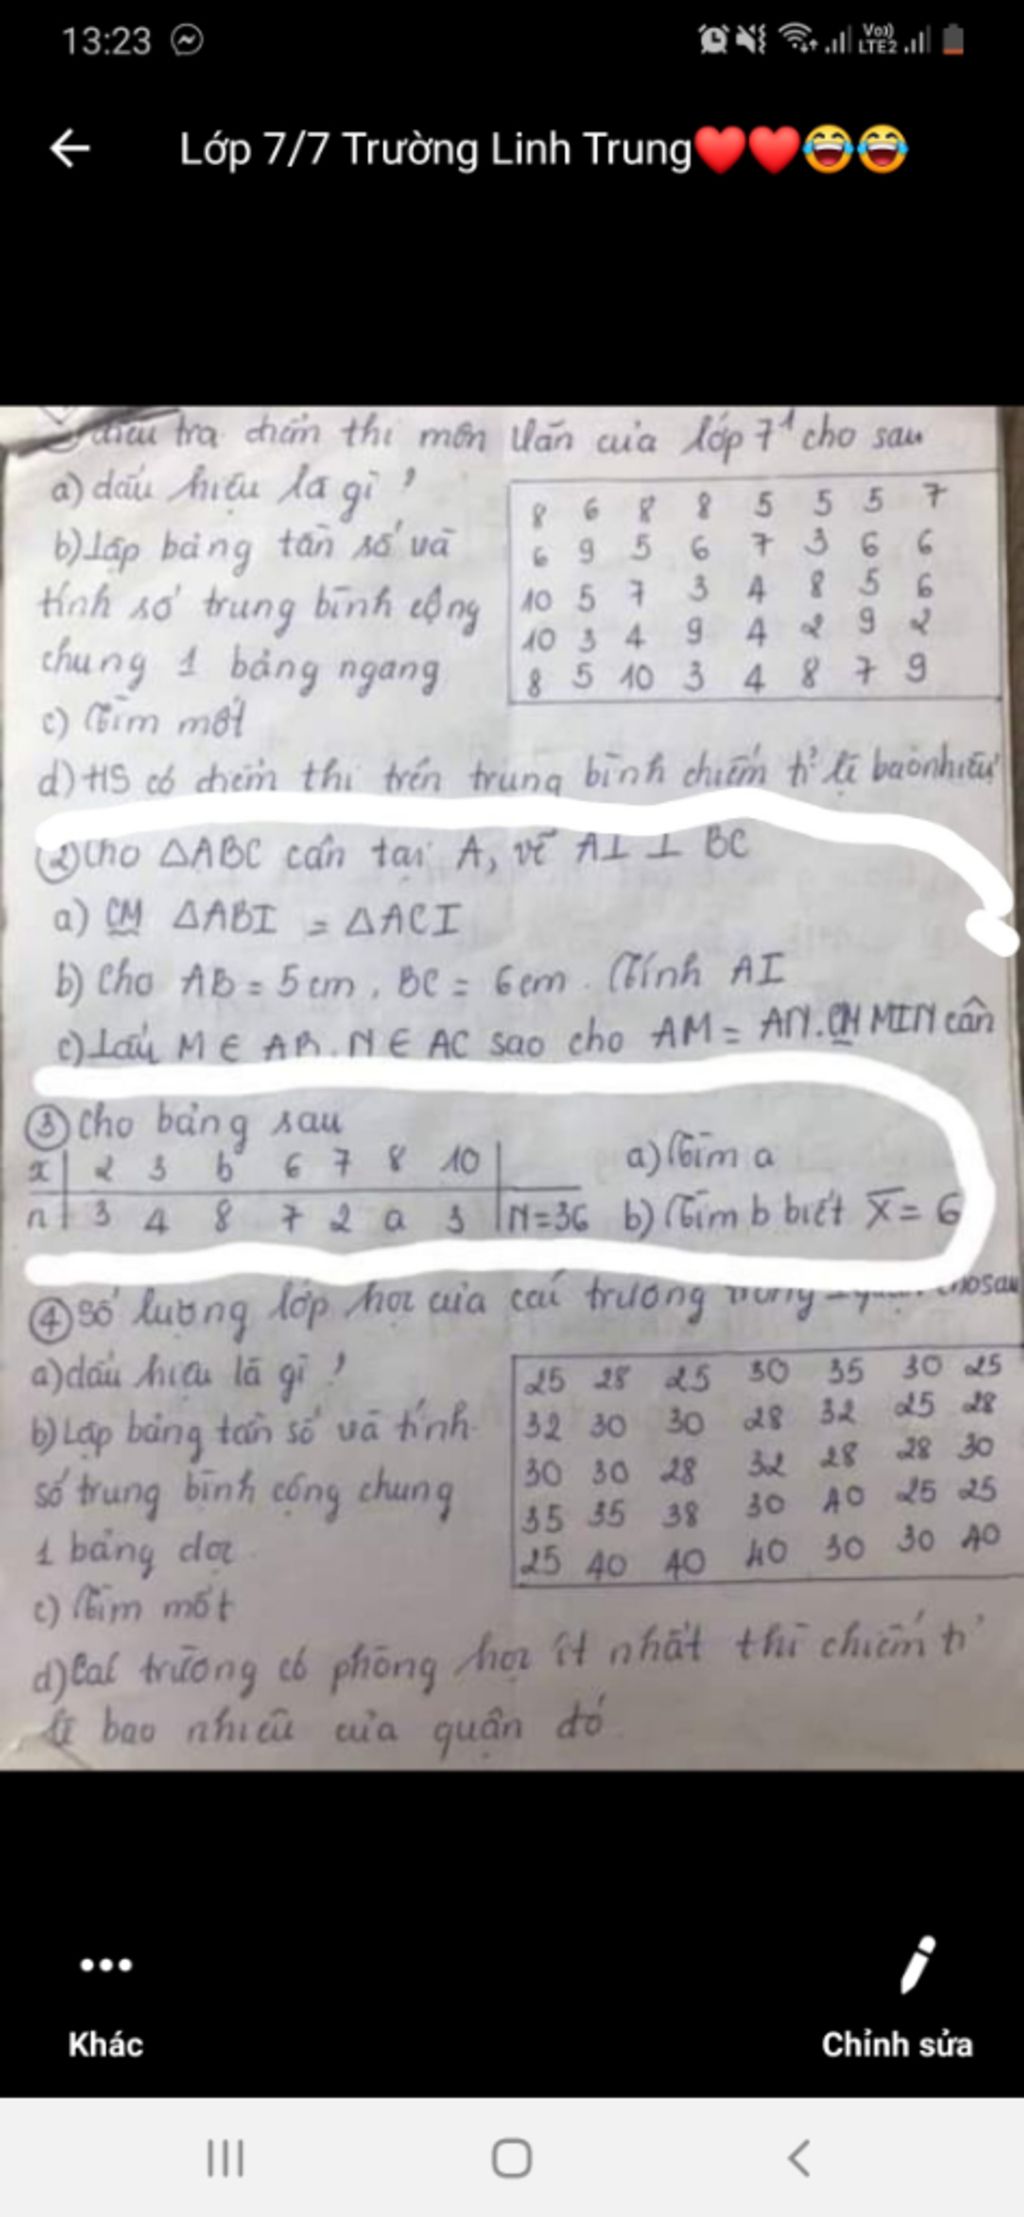 13:23
Vo)) LTE2
Lớp 7/7 Trường Linh Trung❤️❤️😂😂
điều tra điểm thi môn Văn của lớp 7¹ cho sau
a) dấu hiệu là gì?
b) Lập bảng tần số và
tính số trung bình cộng
chung 1 bảng ngang
c) Tìm mốt
8 6 8 8 5 5 5 7
6 9 5 6 7 3 6 6
10 5 7 3 4 8 5 6
10 3 4 9 4 2 9 2
8 5 10 3 4 8 7 9
d) HS có điểm thi trên trung bình chiếm tỉ lệ bao nhiêu
② Cho △ABC cân tại A, vẽ AI ⊥ BC
a) CM △ABI = △ACI
b) Cho AB = 5cm, BC = 6cm. Tính AI
c) Lấy M ∈ AB. N ∈ AC sao cho AM = AN. CM MIN cân
③ Cho bảng sau
x | 2 3 b 6 7 8 10 |
n | 3 4 8 7 2 a 3 | N=36
a) Tìm a
b) Tìm b biết X̅ = 6
④ Số lượng lớp học của các trường trong quận cho sau
a) dấu hiệu là gì?
b) Lập bảng tần số và tính
số trung bình cộng chung
1 bảng dọc
c) Tìm mốt
25 28 25 30 35 30 25
32 30 30 28 32 25 28
30 30 28 32 28 28 30
35 35 38 30 40 25 25
25 40 40 40 30 30 40
d) Các trường có phòng học ít nhất thì chiếm tỉ
lệ bao nhiêu của quận đó
Khác
Chỉnh sửa